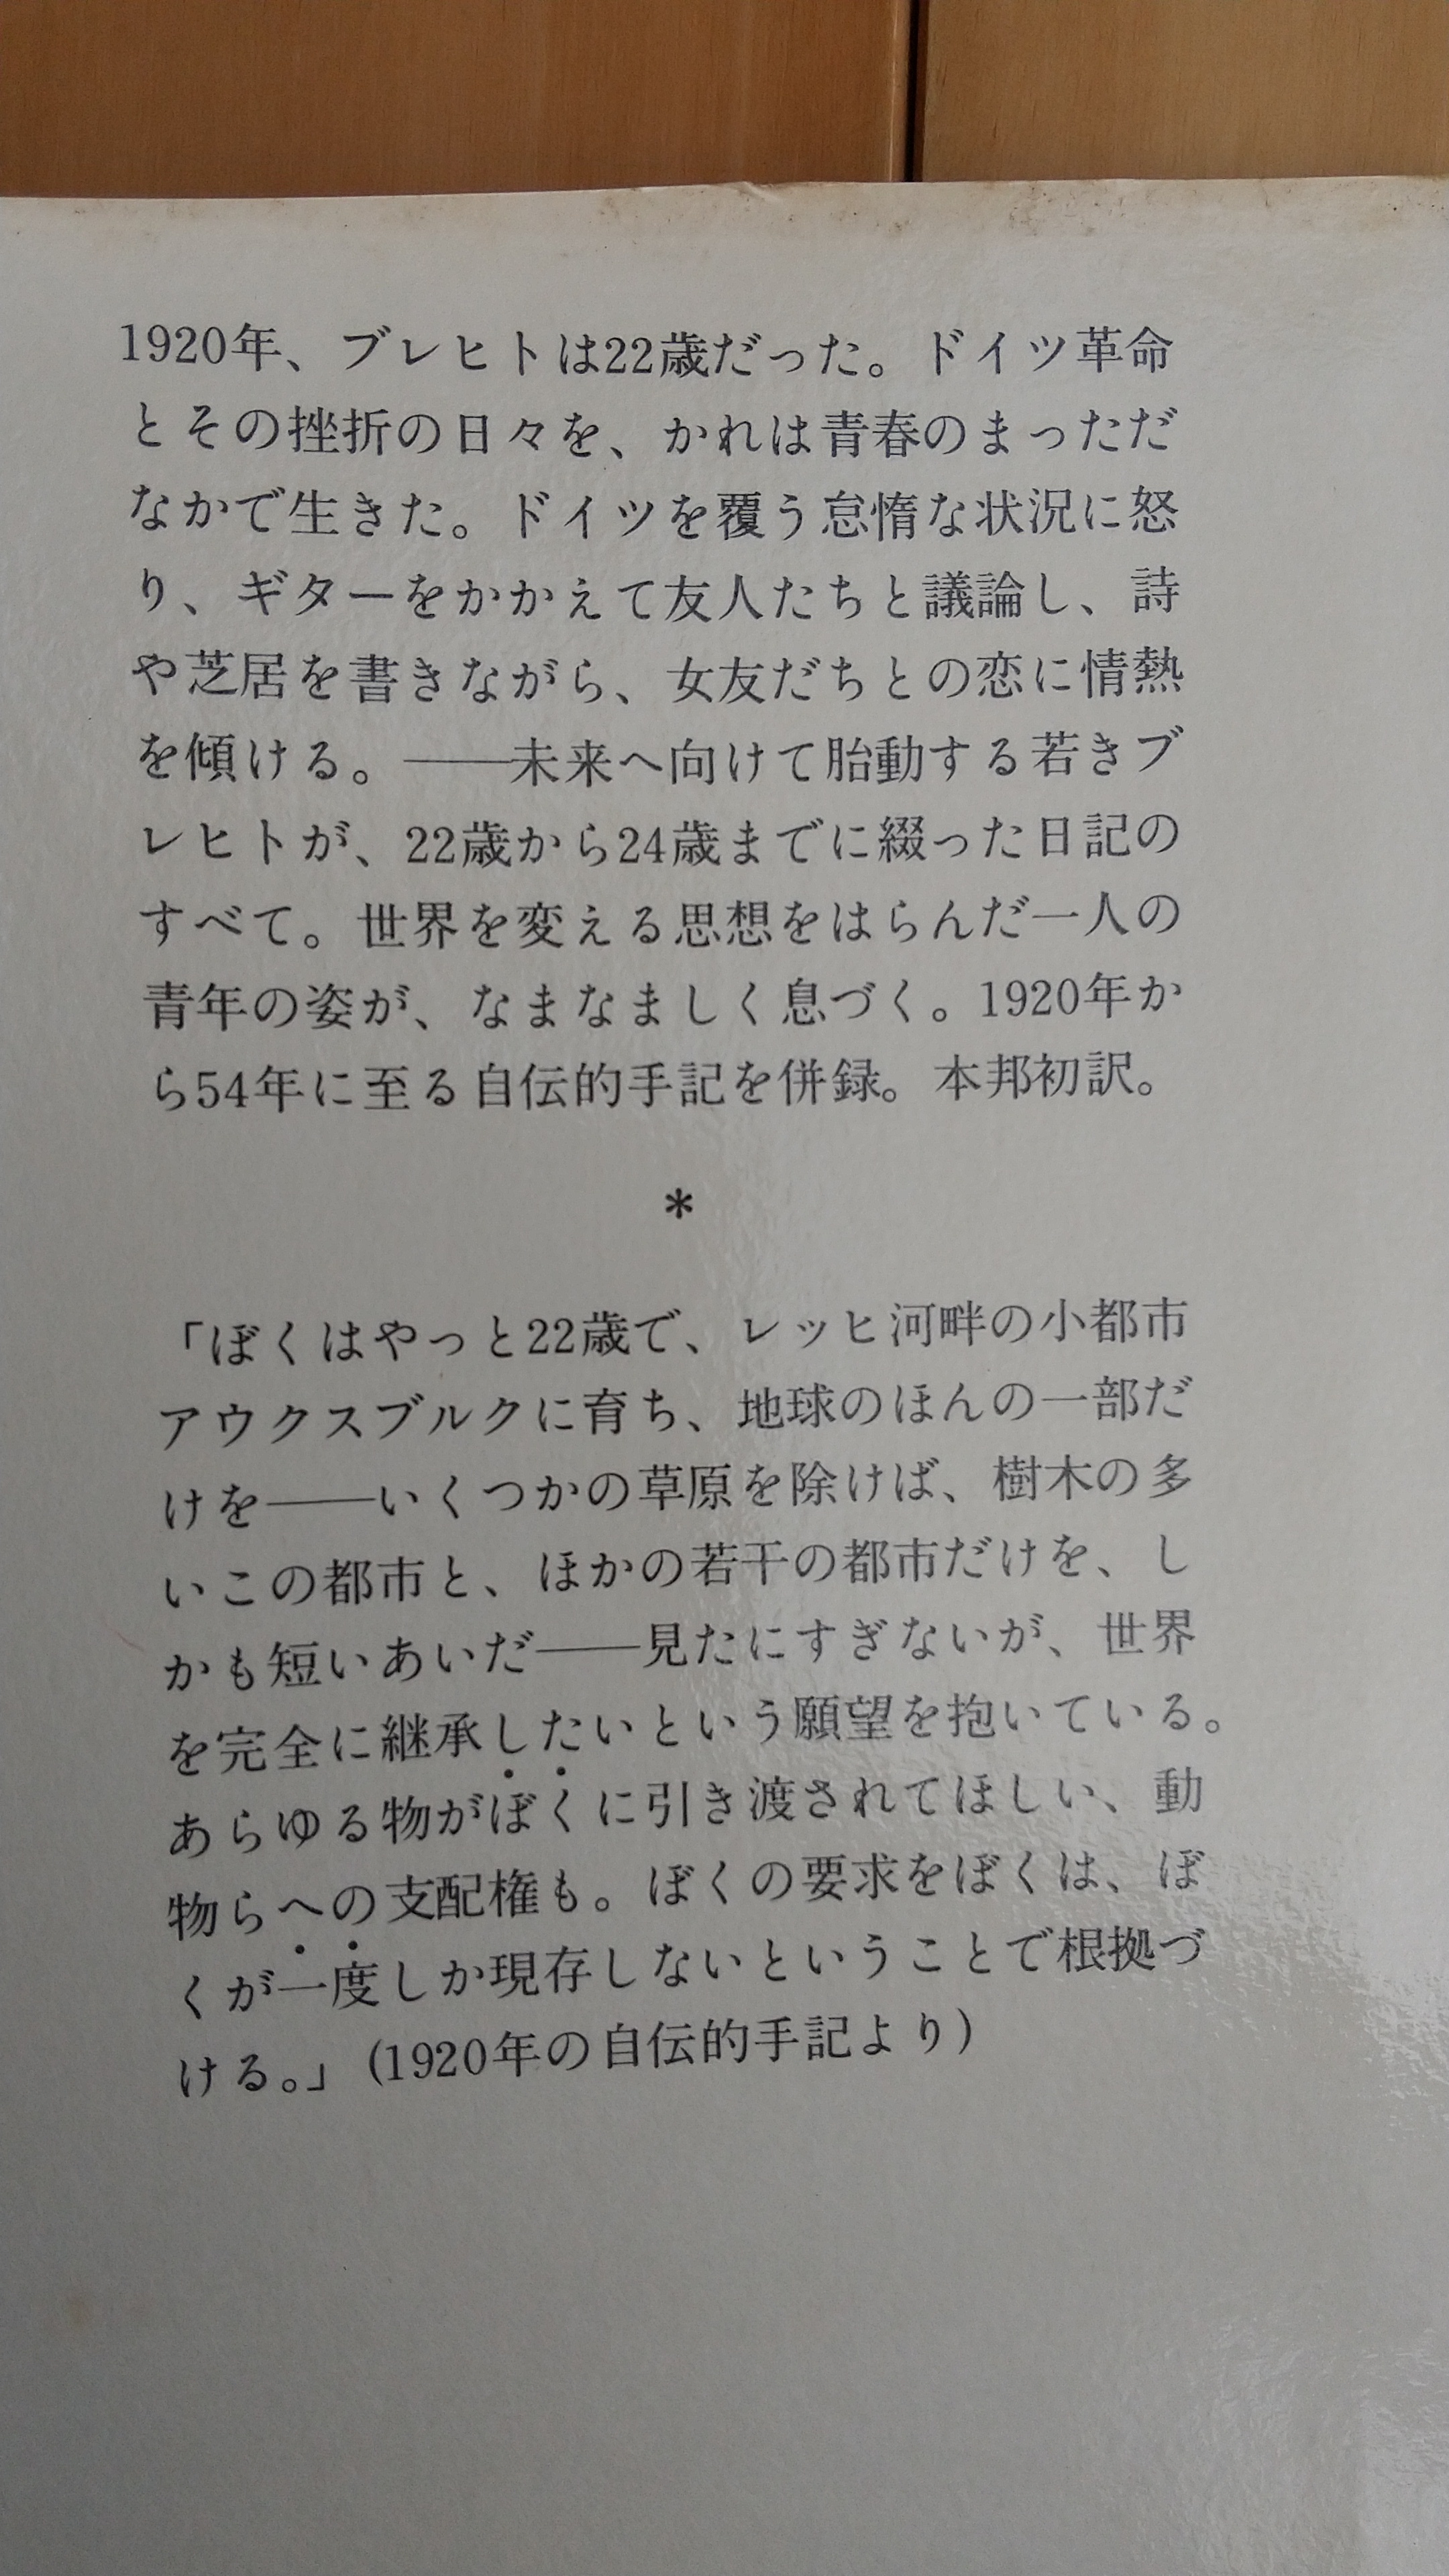 1920年、ブレヒトは22歳だった。ドイツ革命
とその挫折の日々を、かれは青春のまっただ
なかで生きた。ドイツを覆う怠惰な状況に怒
り、ギターをかかえて友人たちと議論し、詩
や芝居を書きながら、女友だちとの恋に情熱
を傾ける。――未来へ向けて胎動する若きブ
レヒトが、22歳から24歳までに綴った日記の
すべて。世界を変える思想をはらんだ一人の
青年の姿が、なまなましく息づく。1920年か
ら54年に至る自伝的手記を併録。本邦初訳。
*
「ぼくはやっと22歳で、レッヒ河畔の小都市
アウクスブルクに育ち、地球のほんの一部だ
けを――いくつかの草原を除けば、樹木の多
いこの都市と、ほかの若干の都市だけを、し
かも短いあいだ――見たにすぎないが、世界
を完全に継承したいという願望を抱いている。
あらゆる物がぼくに引き渡されてほしい、動
物らへの支配権も。ぼくの要求をぼくは、ぼ
くが一度しか現存しないということで根拠づ
ける。」(1920年の自伝的手記より)